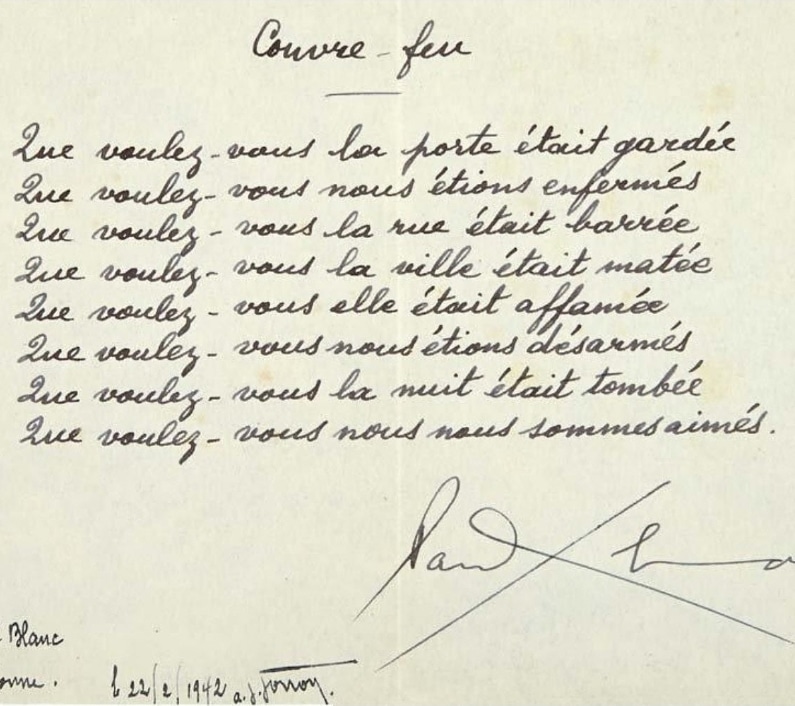 Couvre-feu
Que voulez-vous la porte était gardée
Que voulez-vous nous étions enfermés
Que voulez-vous la rue était barrée
Que voulez-vous la ville était matée
Que voulez-vous elle était affamée
Que voulez-vous nous étions désarmés
Que voulez-vous la nuit était tombée
Que voulez-vous nous nous sommes aimés.
Paul
Blanc
le 22/2/1942